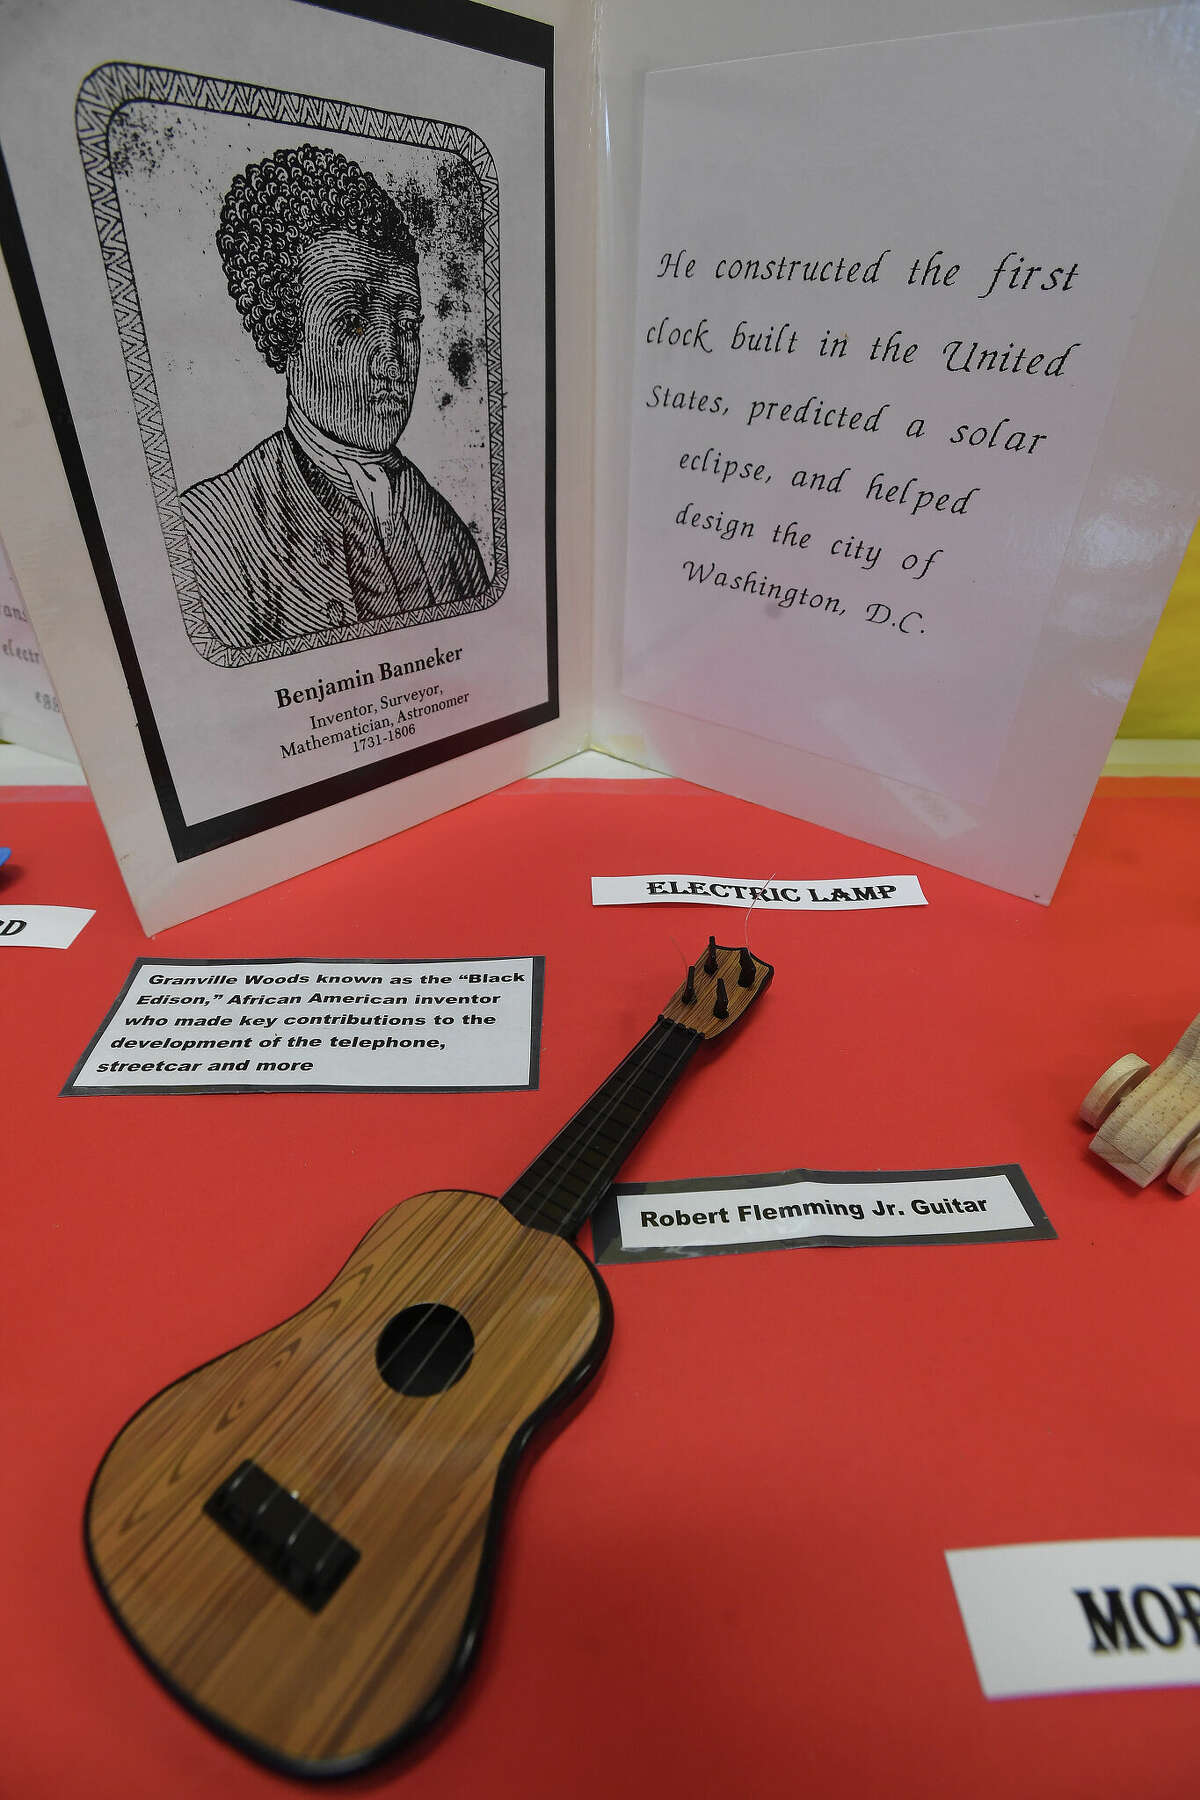 Benjamin Banneker
Inventor, Surveyor,
Mathematician, Astronomer
1731-1806
He constructed the first
clock built in the United
States, predicted a solar
eclipse, and helped
design the city of
Washington, D.C.
ELECTRIC LAMP
Granville Woods known as the “Black
Edison,” African American inventor
who made key contributions to the
development of the telephone,
streetcar and more
Robert Flemming Jr. Guitar